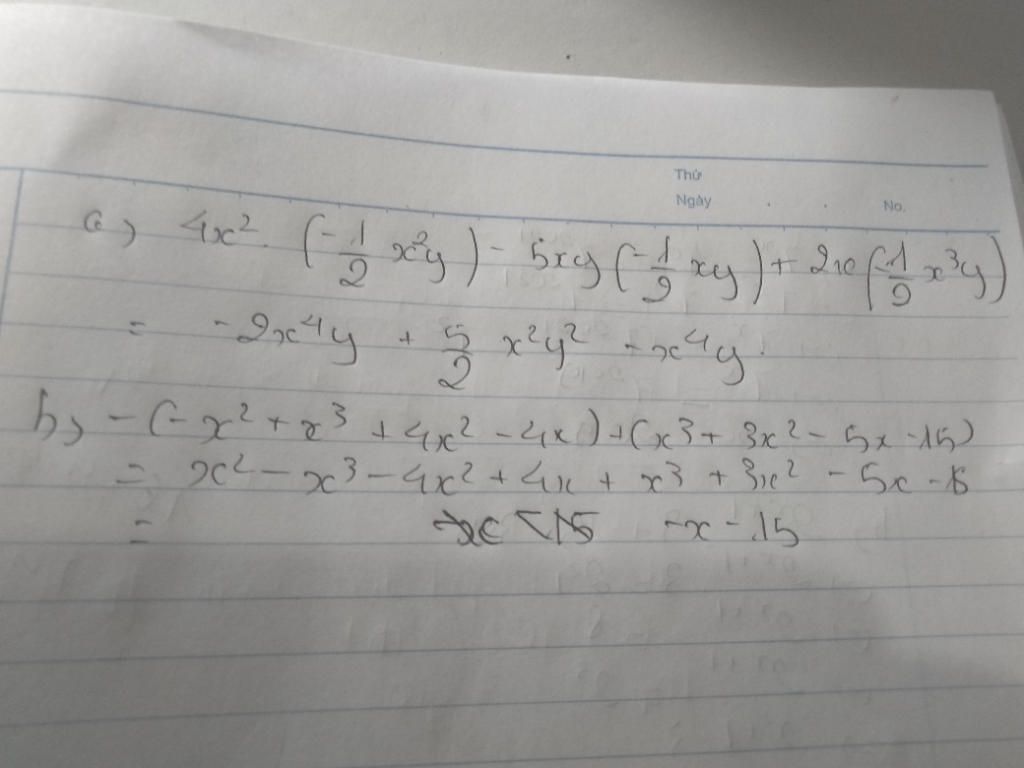 Thứ
Ngày . . No.
a) 4x². (-1/2 x²y) - 5xy (-1/2 xy) + 2x (-1/2 x³y)
= -2x⁴y + 5/2 x²y² - x⁴y.
b) -(-x² + x³ + 4x² - 4x) + (x³ + 3x² - 5x - 15)
= x² - x³ - 4x² + 4x + x³ + 3x² - 5x - 15
= -x - 15